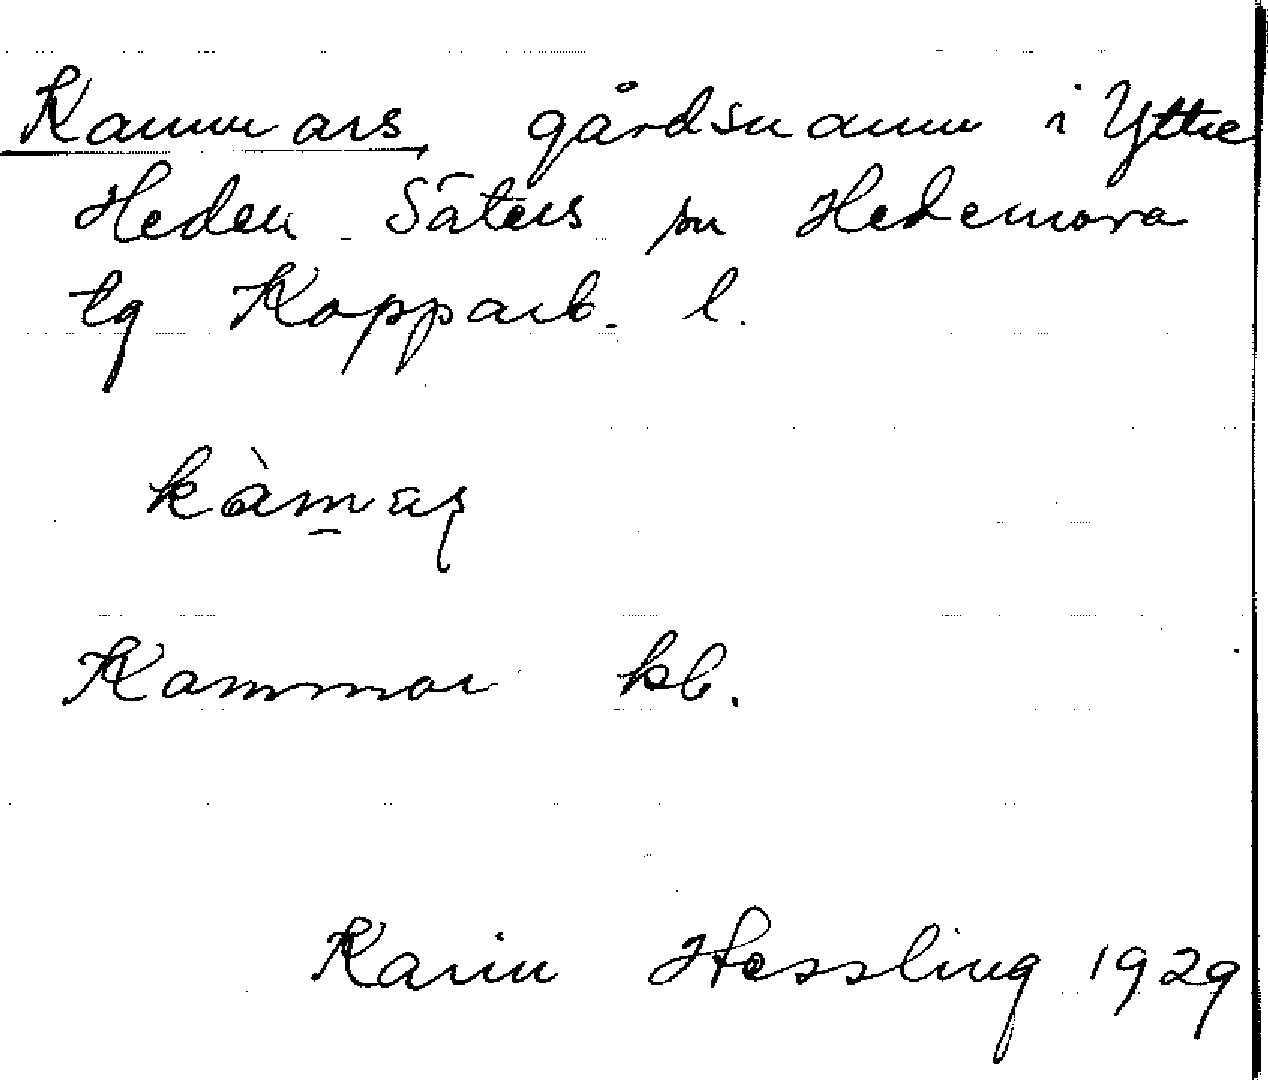 Kammars gårdsnamn i Yttre
Heden Säters sn Hedemora
tg Kopparb. l.
kàm̱aṣ
Kammar kb.
Karin Hessling 1929